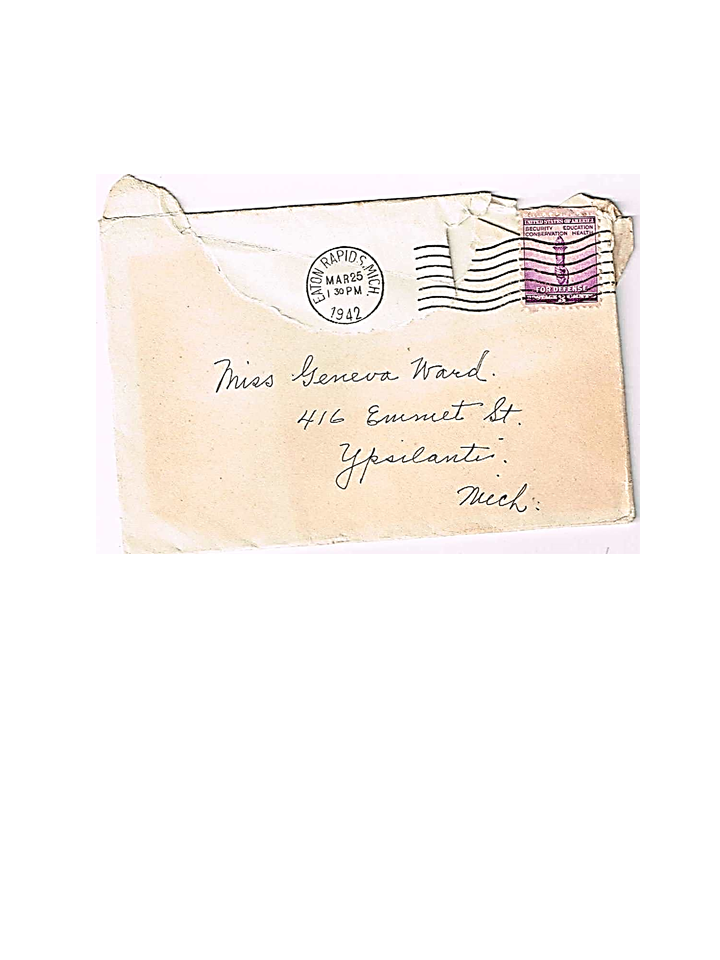 EATON RAPIDS, MICH.
MAR 25
1 30 PM
1942
UNITED STATES OF AMERICA
SECURITY EDUCATION
CONSERVATION HEALTH
FOR DEFENSE
POSTAGE 3 CENTS
Miss Geneva Ward.
416 Emmet St.
Ypsilanti.
Mich.